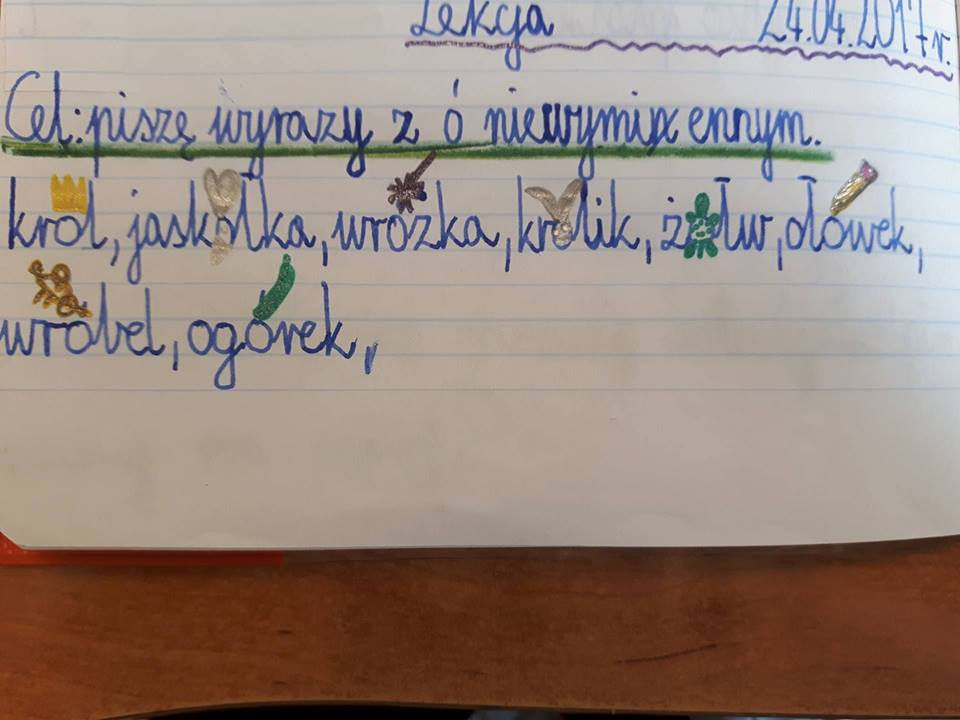 Lekcja 24.04.2017r.
Cel: piszę wyrazy z ó niewymiennym.
król, jaskółka, wróżka, królik, żółw, ołówek,
wróbel, ogórek,